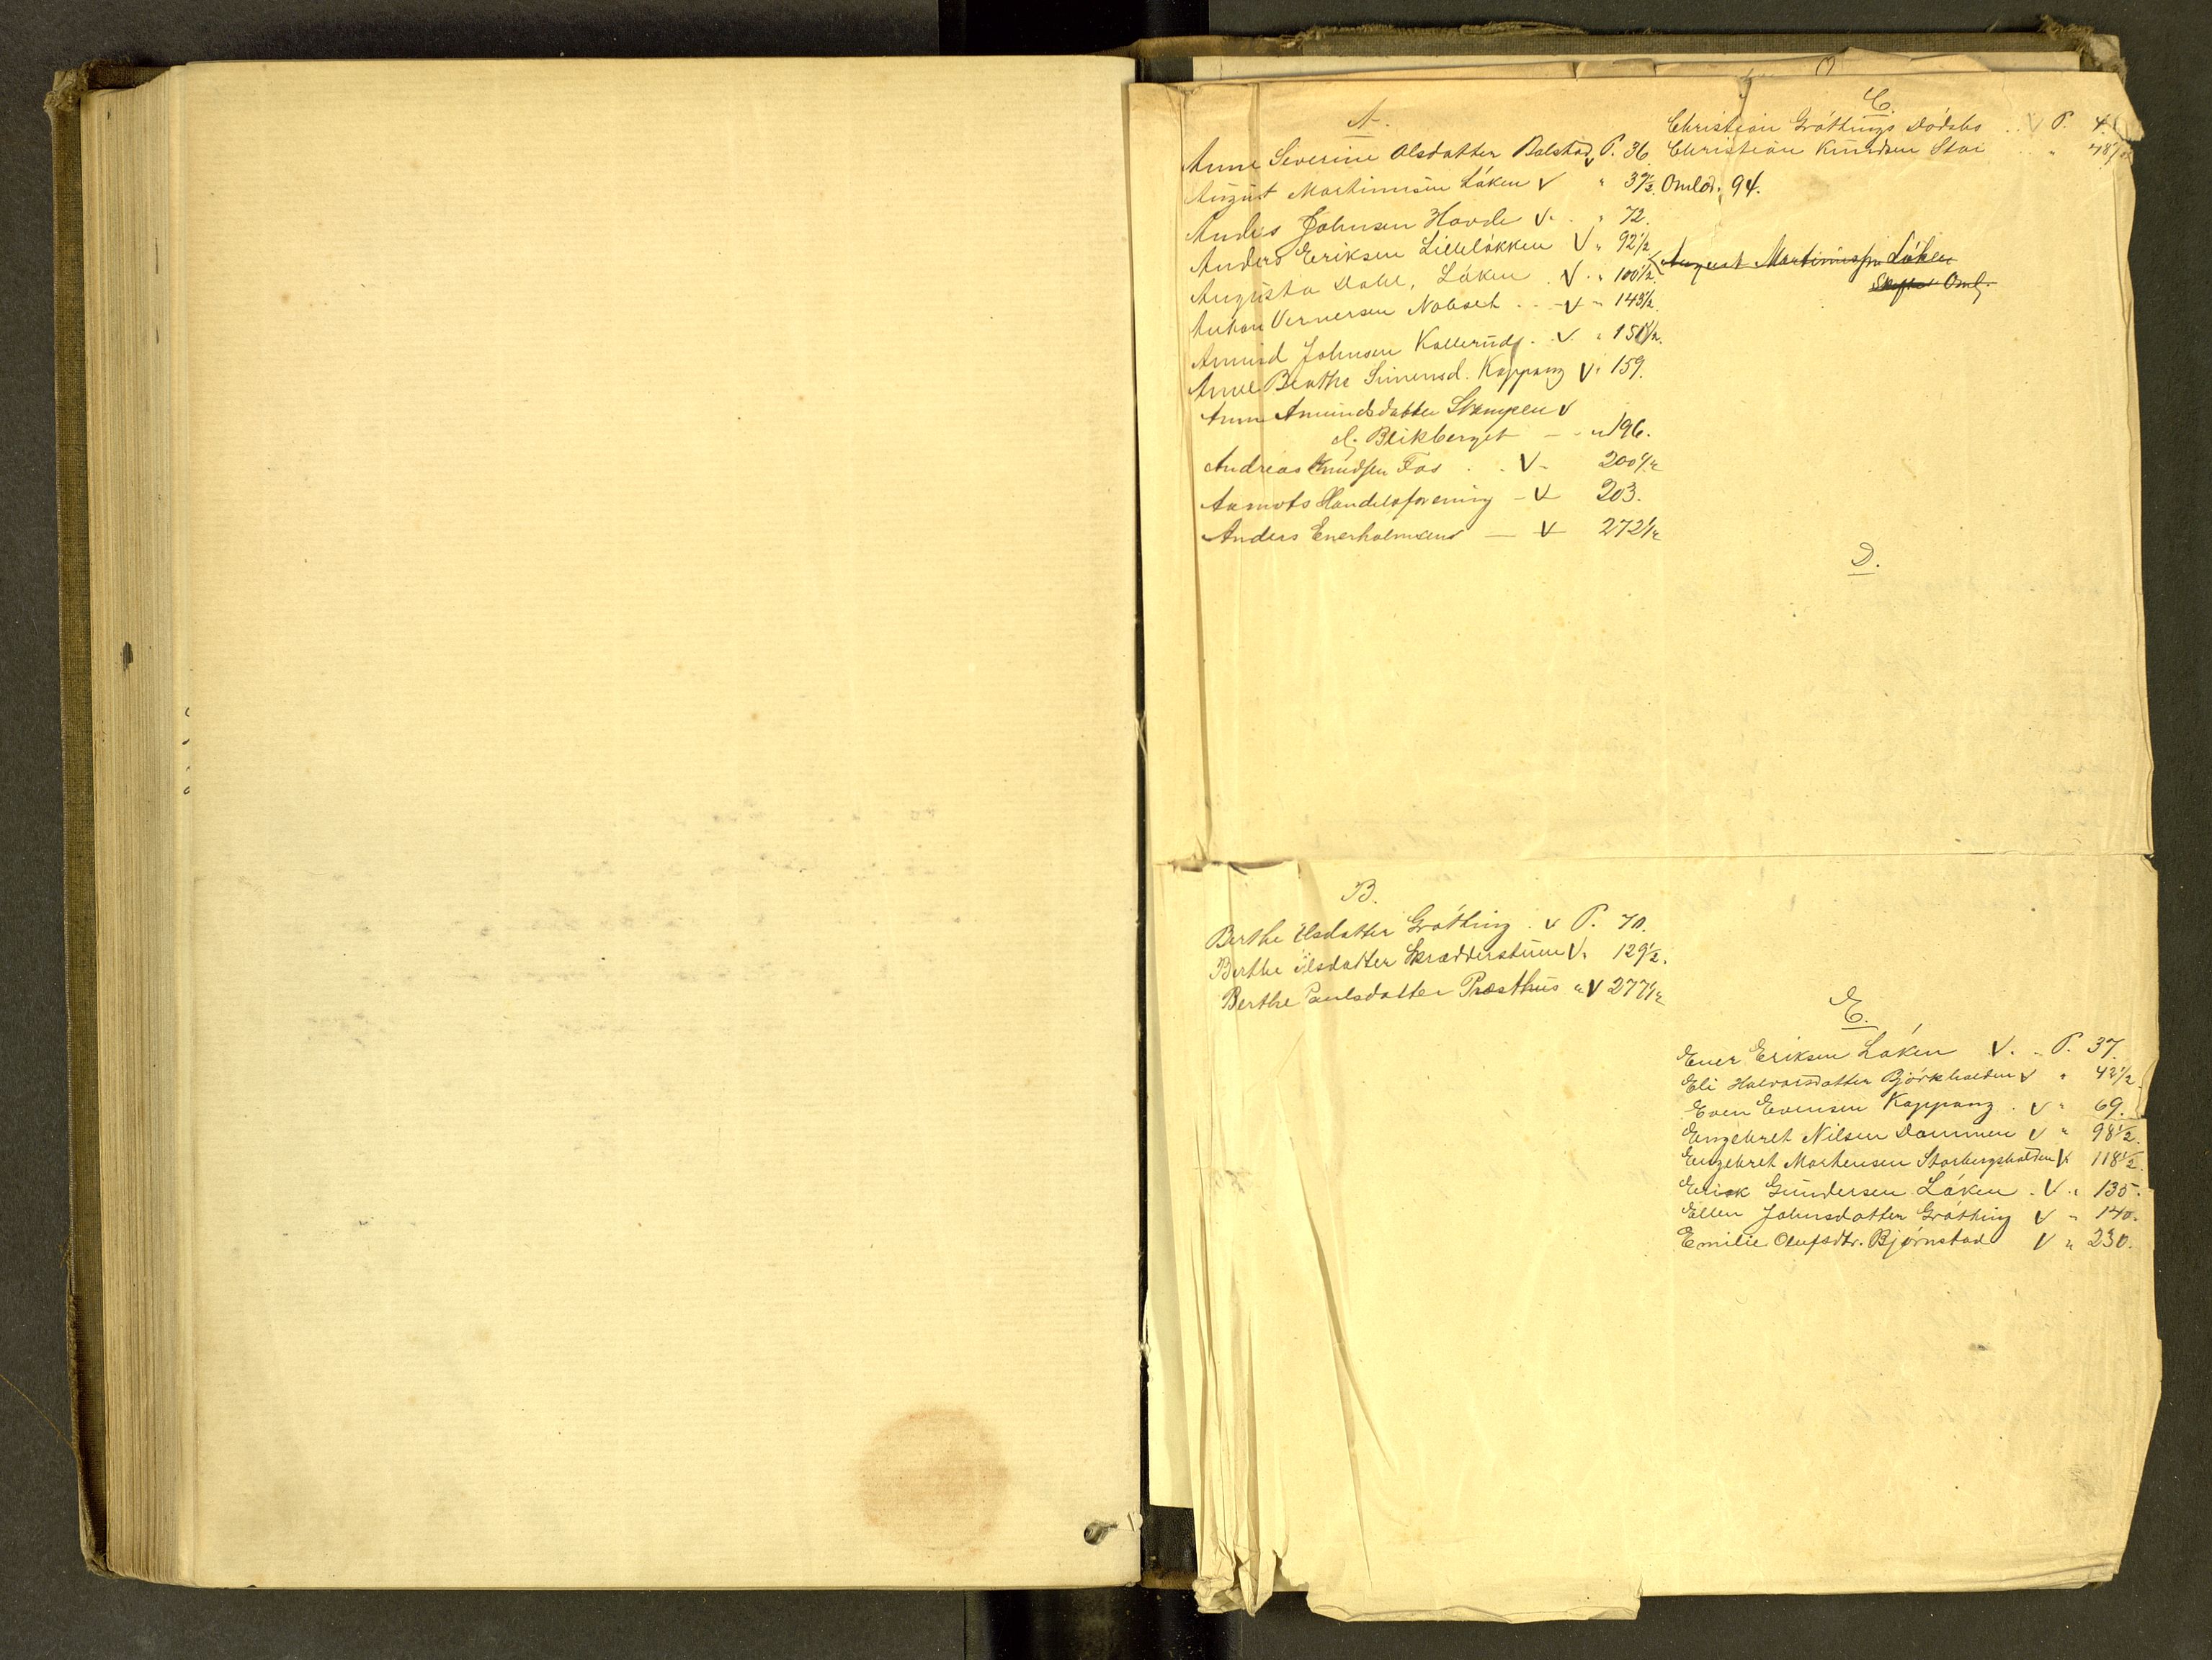 A.
Anne Severine Olsdatter Balstad v P. 36.
August Martinusen Løken V " 39½. Omlød. 94.
Anders Johnsen Hovde V. . " 72.
Anders Eriksen Lilleløkken V " 92½
Augusta Dahl, Løken . V. " 100½.
Anton Vernersen Nabset . . - V - " 145½.
Amund Johnsen Kallerud . . V. " 151½.
Anne Beathe Simensd. Koppang V " 159.
Anne Amundsdatter Strempen V
Blikberget — - " 196.
Andreas Knudsen Fos . . V - 200½
Aamots Handelsforening - V 203.
Anders Enerholmens — V 272½
C.
Christian Grøthings Dødsbo . . V P. 4.
Christian Knudsen Stai "
August Martinusen Løken
Omb.
D.
B.
Berthe Olsdatter Grøthing . v P. 70.
Berthe Olsdatter Skrædderstuen V. 129½.
Berthe Paulsdatter Præsthus " V 277½
E.
Ener Eriksen Løken V. . P. 37.
Eli Halvorsdatter Bjørkhalden v " 42½.
Even Evensen Koppang . V " 69.
Engebret Nilsen Dammen V " 98½.
Engebret Mortensen Storbergshalden V 118½.
Erick Gundersen Løken . V. " 135.
Ellen Johnsdatter Grøthing V " 140.
Emilie Olufsdtr. Bjørnstad V " 230.